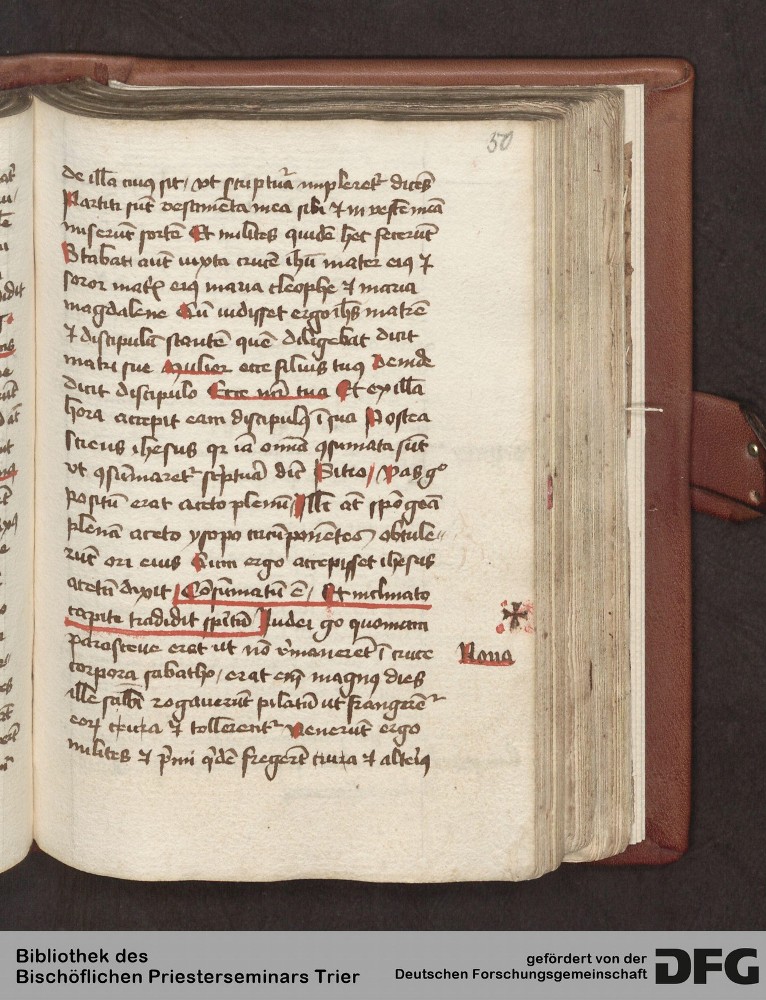 50
de illa cuiꝯ sit / vt scriptura impleretr dicēs
Partiti sūt vestimēta mea sibi ⁊ in vestē meā
miserūt sortē Et milites quidē hec fecerūt
Stabāt aūt iuxta crucē ihū mater eiꝯ ⁊
soror matrꝭ eiꝯ maria cleophe ⁊ maria
magdalene Cū vidisset ergo ihs matrē
⁊ discipulū stantē quē diligebat dicit
matri sue Mulier ecce filius tuꝯ Deinde
dicit discipulo Ecce mr̄ tua Et ex illa
hora accepit eam discipulꝯ ī sua Postea
sciens ihesus qr iā om̄ia ꝯsumata sūt
vt ꝯsūmaretr scptura dic̄ Sitio / Vas gͦ
positū erat aceto plenū / Illi at̄ spōgeā
plenā aceto ysopo circūponentes obtule-
rūt ori eius Cum ergo accepisset ihesus
acetū dixit / Cōsūmatū ē / Et inclinato
capite tradidit spiritū Iudei gͦ quoniam
parasceue erat ut nō rͤmanerēt ī cruce
Nona
corpora sabatho / erat em̄ magnꝯ dies
ille sabb̄i rogauerūt pilatū ut frangrēt
eorꝝ crura ⁊ tollerentr Venerūt ergo
milites ⁊ pͥmi qͥdē fregerūt crura ⁊ alteriꝯ
Bibliothek des
Bischöflichen Priesterseminars Trier
gefördert von der
Deutschen Forschungsgemeinschaft
DFG